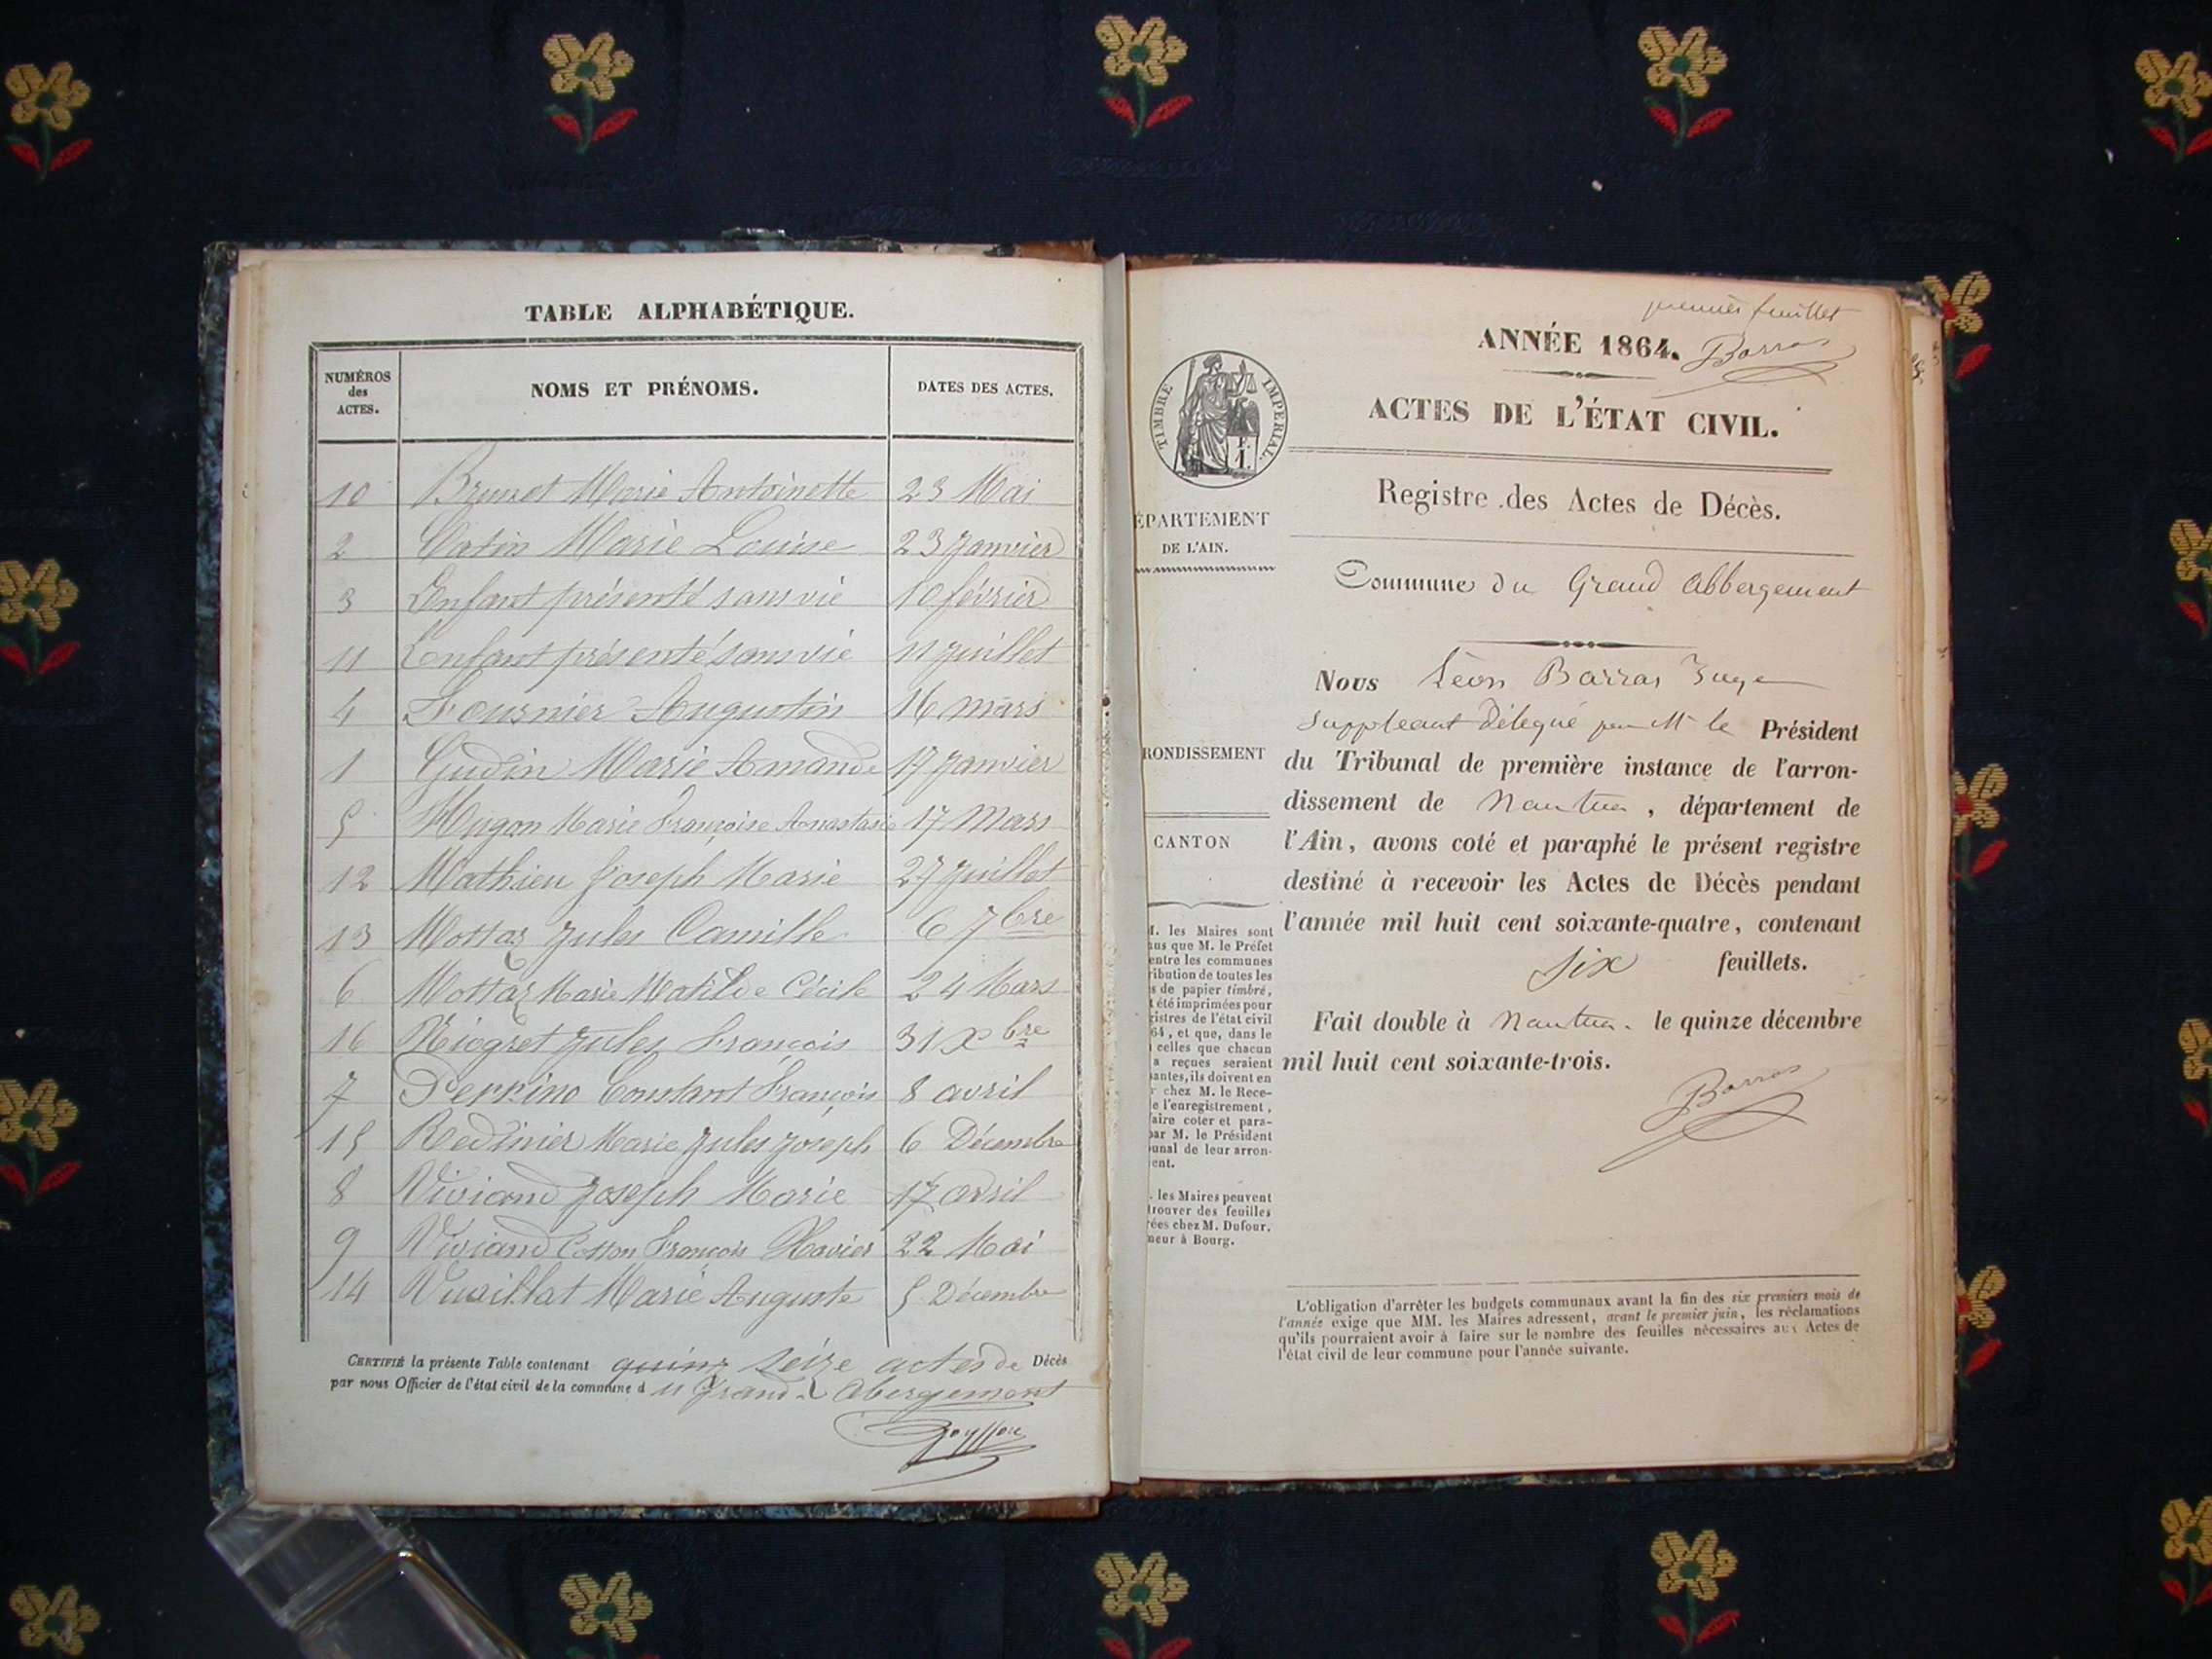 TABLE ALPHABÉTIQUE.
NUMÉROS des ACTES. NOMS ET PRÉNOMS. DATES DES ACTES.
10 Brunet Marie Antoinette 23 Mai
2 Catin Marie Louise 23 Janvier
3 Enfant présenté sans vie 10 février
11 Enfant présenté sans vie 11 Juillet
4 Fournier Augustin 16 mars
1 Gudin Marie Amande 17 Janvier
5 Hugon Marie Françoise Anastasie 17 Mars
12 Mathieu Joseph Marie 27 Juillet
13 Mottaz Jules Camille 6 7bre
6 Mottaz Marie Matilde Cécile 24 Mars
16 Niogret Jules François 31 Xbre
7 Perrino Constant François 8 avril
15 Marie Jules Joseph 6 Décembre
8 Viviand Joseph Marie 17 avril
9 Viviand Cotton François Xavier 22 Mai
14 Vuaillat Marie Auguste 5 Décembre
CERTIFIÉ la présente Table contenant quinz seize actes de Décès
par nous Officier de l'état civil de la commune du Grand Abergement
premier feuillet
ANNÉE 1864. Barras
ACTES DE L'ÉTAT CIVIL.
TIMBRE IMPERIAL.
F.
1.
Registre des Actes de Décès.
ÉPARTEMENT
DE L'AIN.
Commune du Grand Abbergement
Nous Léon Barras Juge
suppléant Délégué par Mr le Président
RONDISSEMENT
du Tribunal de première instance de l'arron-
dissement de Nantua, département de
CANTON
l'Ain, avons coté et paraphé le présent registre
destiné à recevoir les Actes de Décès pendant
l'année mil huit cent soixante-quatre, contenant
six feuillets.
Fait double à Nantua. le quinze décembre
mil huit cent soixante-trois.
Barras
M. les Maires sont
us que M. le Préfet
entre les communes
ribution de toutes les
s de papier timbré,
t été imprimées pour
gistres de l'état civil
64, et que, dans le
celles que chacun
a reçues seraient
antes, ils doivent en
r chez M. le Rece-
e l'enregistrement,
aire coter et para-
par M. le Président
unal de leur arron-
ent.
. les Maires peuvent
trouver des feuilles
rées chez M. Dufour,
meur à Bourg.
L'obligation d'arrêter les budgets communaux avant la fin des six premiers mois de
l'année exige que MM. les Maires adressent, avant le premier juin, les réclamations
qu'ils pourraient avoir à faire sur le nombre des feuilles nécessaires aux Actes de
l'état civil de leur commune pour l'année suivante.